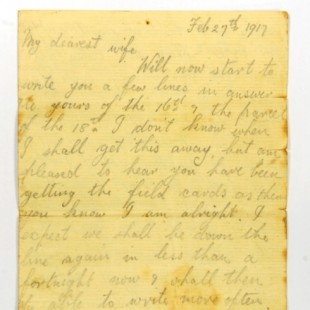 Feb 27th 1917
My dearest wife
Will now start to
write you a few lines in answer
to yours of the 16th & the parcel
of the 18th I don't know when
I shall get this away but am
pleased to hear you have been
getting the field cards as then
you know I am alright. I
expect we shall be down the
line again in less than a
fortnight now & shall then
be able to write more often